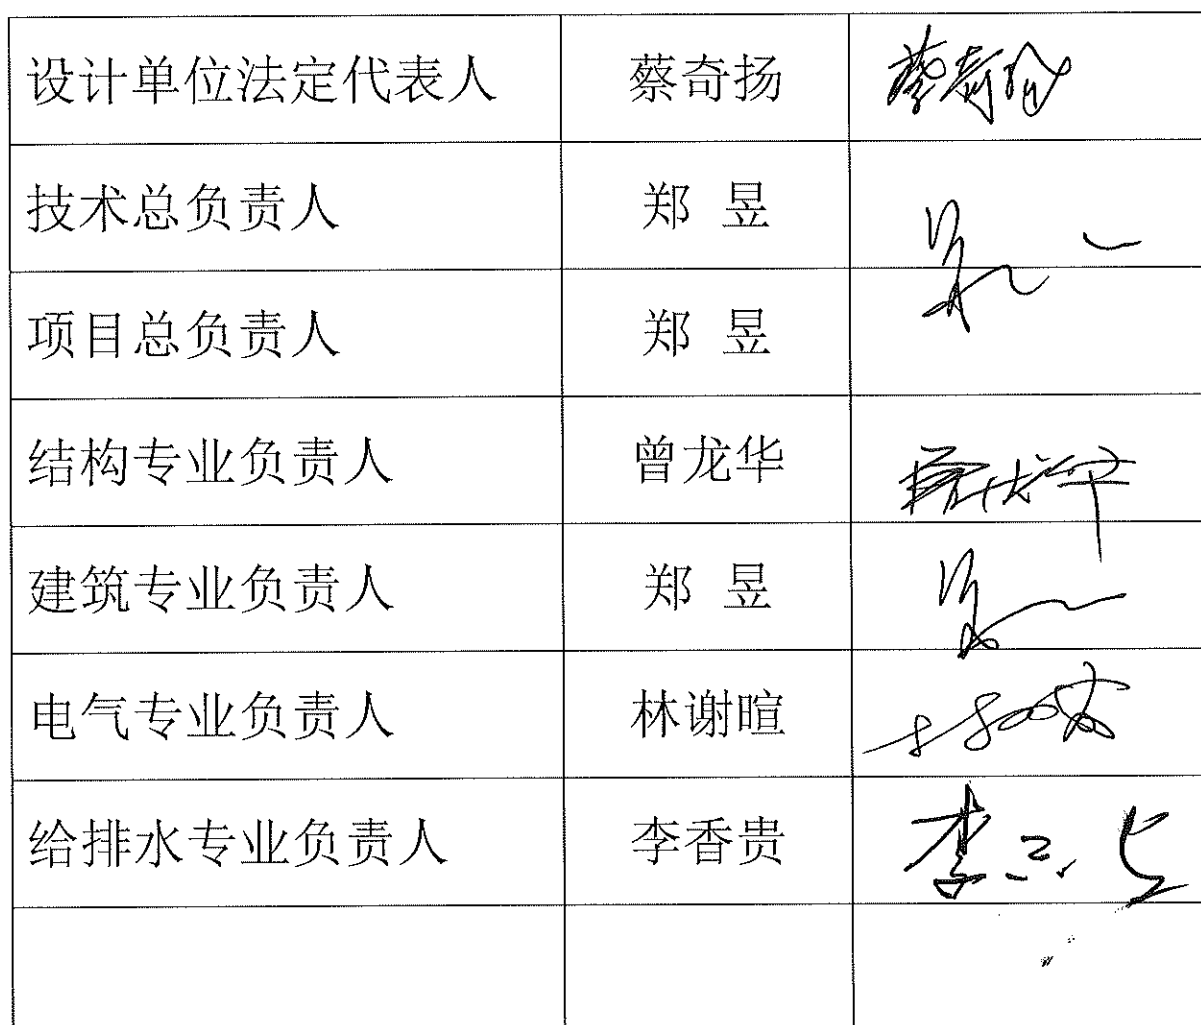 设计单位法定代表人 蔡奇扬 蔡奇扬
技术总负责人 郑 昱
项目总负责人 郑 昱
结构专业负责人 曾龙华
建筑专业负责人 郑 昱
电气专业负责人 林谢暄
给排水专业负责人 李香贵